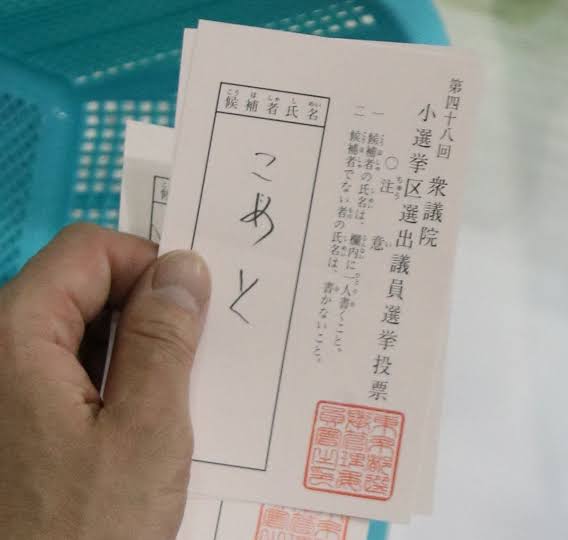 第四十八回
衆議院
小選挙区選出議員選挙投票
〇注意
一 候補者の氏名は、欄内に一人書くこと。
二 候補者でない者の氏名は、書かないこと。
候補者氏名
こめと
東京都選挙管理委員会之印